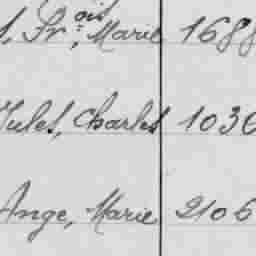 Fr.ois, Marie 168
Jules, Charles 1030
Ange, Marie 2106